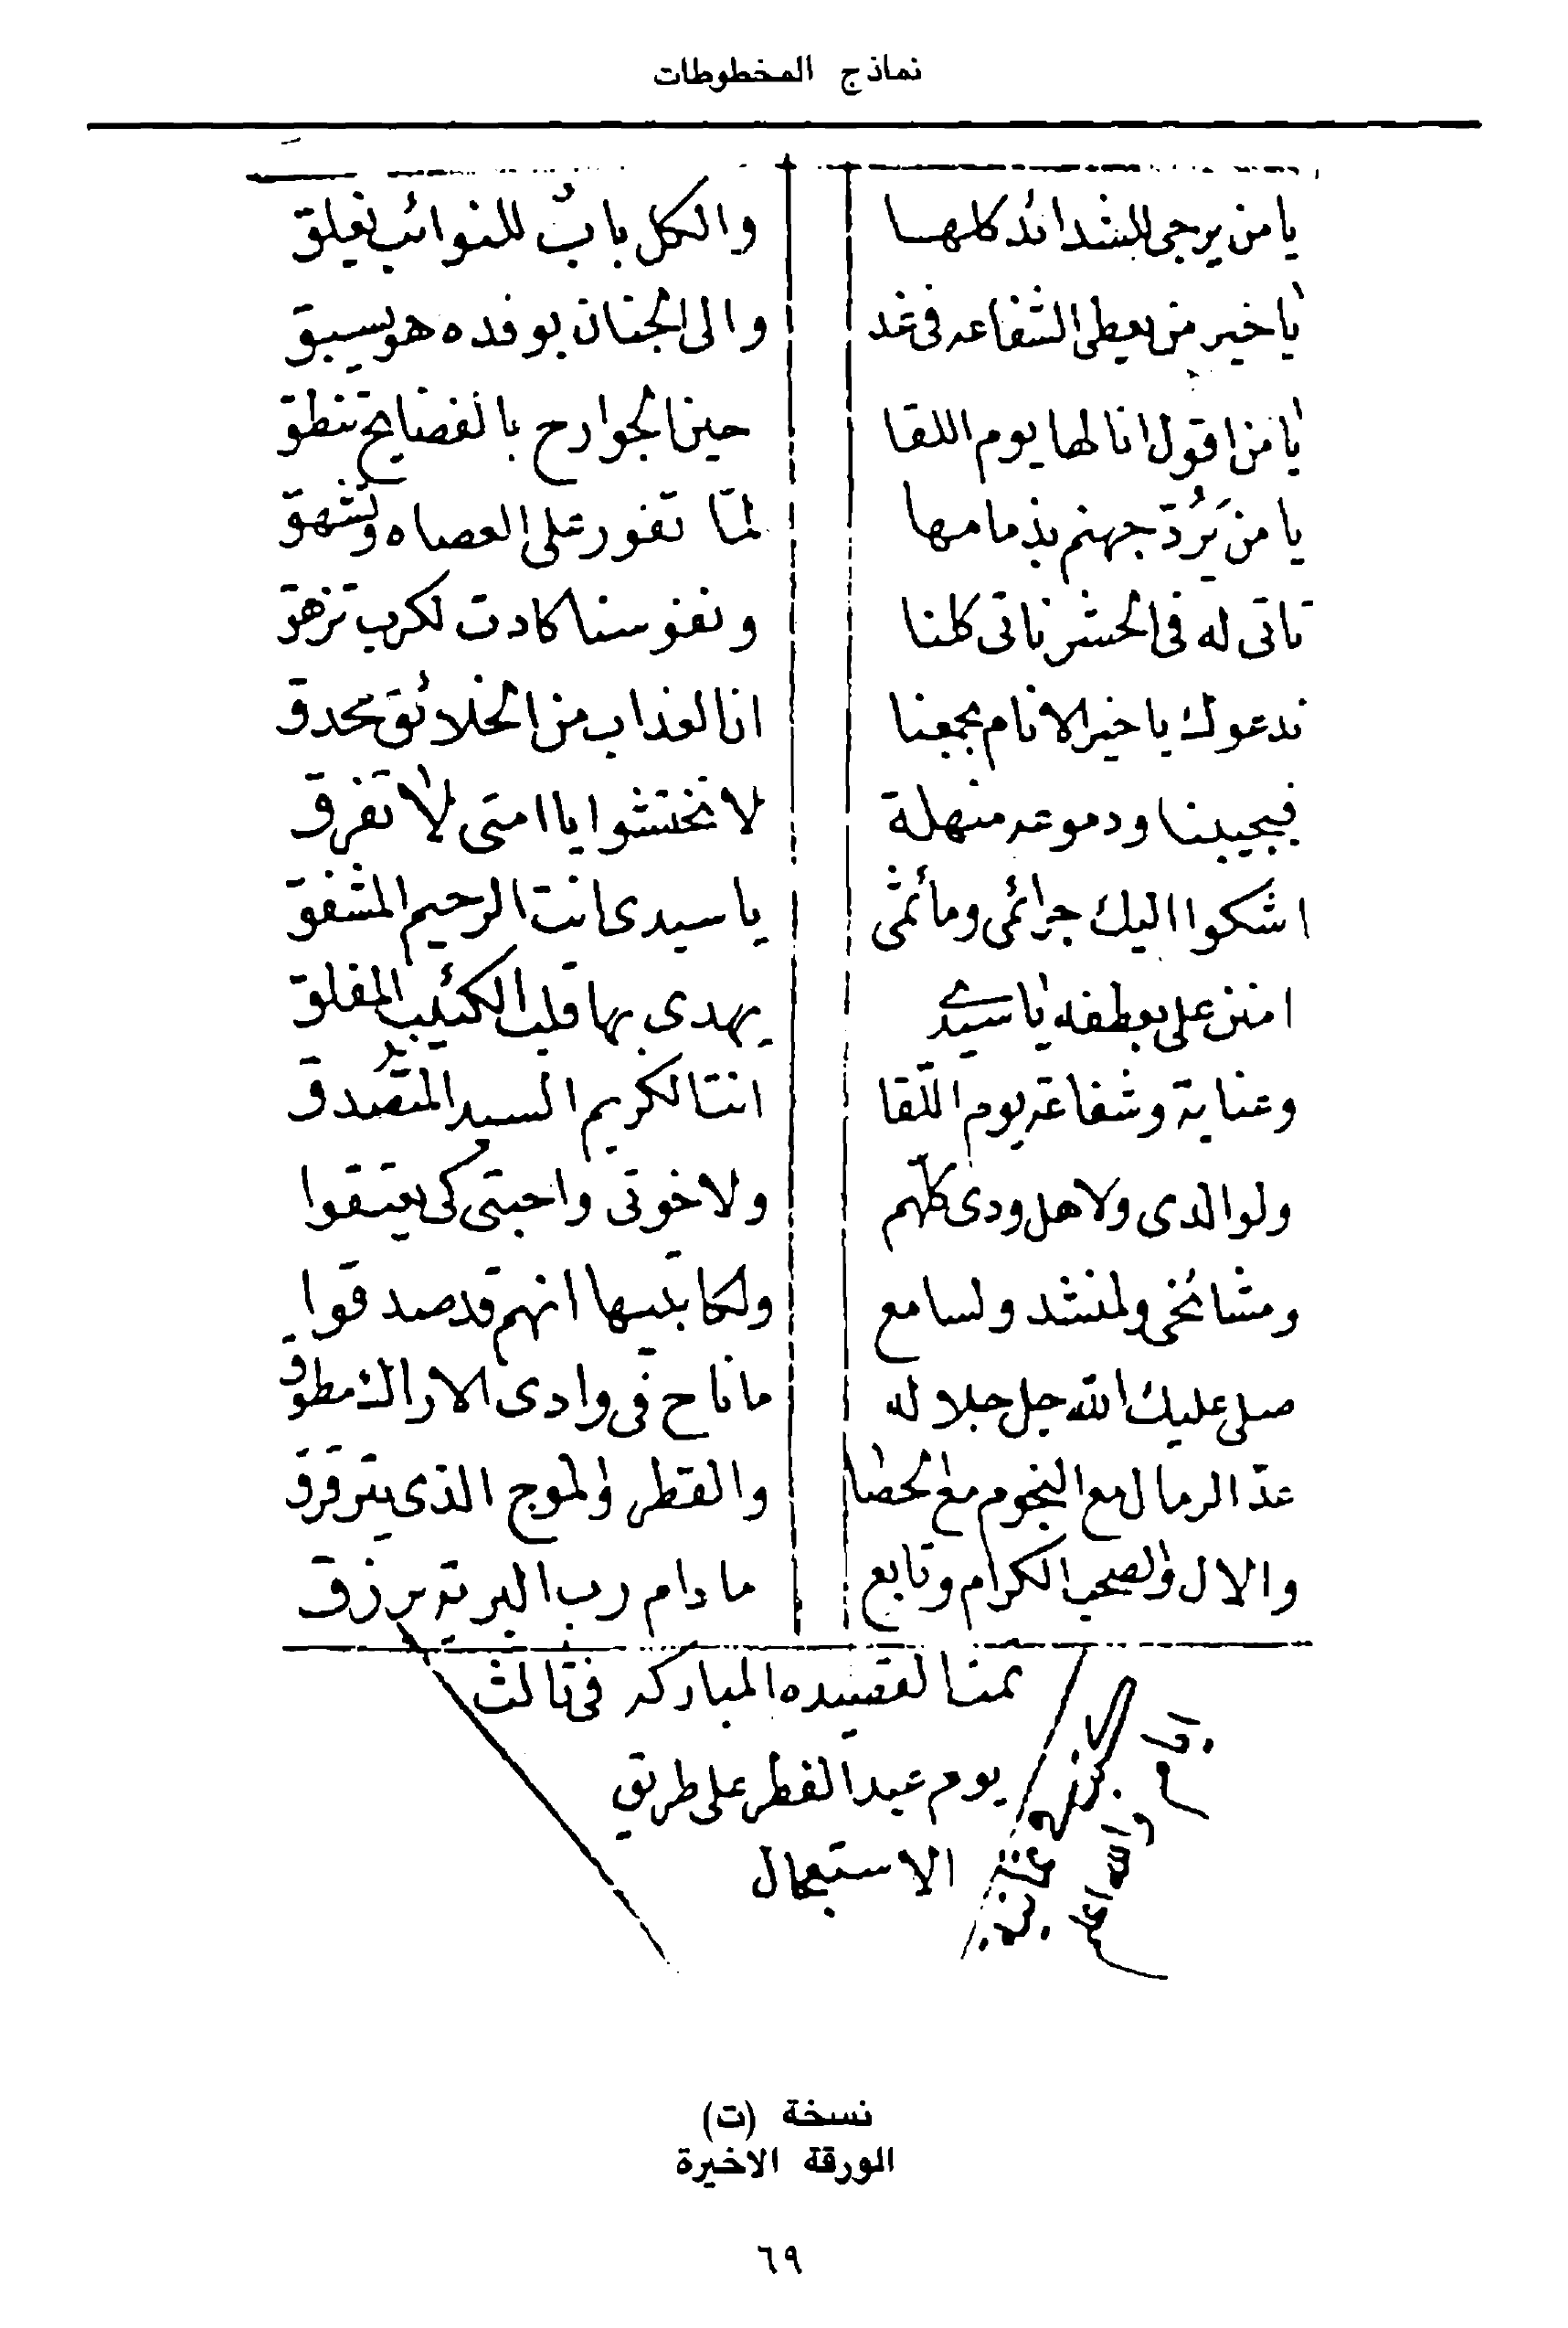 نماذج المخطوطات
يا من يرجى للشدائد كلها والكل بابٌ للنوائب يغلق
يا خير من يعطى الشفاعه فى غد والى الجنان بوفده هو يسبق
يا من اقول انا لها يوم اللقا حين الجوارح بالفضايح تنطق
يا من يَرُدّ جهنم بذمامها لمّا تفور على العصاه وتشهق
تاتى له فى الحشر ناتى كلنا ونفوسنا كادت لكرب تزهق
ندعوك يا خير الانام بجمعنا انا لعذاب من الخلائق محدق
فيجيبنا ودموعه منهلة لا تختشوا يا امتى لا تفرق
اشكوا اليك جرائمى ومأثمى يا سيدى انت الرحيم المشفق
امنن على بعطفه يا سيدى يهدى بها قلب الكئيب المقلق
وعناية وشفاعة يوم اللّقا انت الكريم السيد المتصدق
ولوالدى ولاهل ودى كلّهم ولاخوتى واحبتى كى يعتقوا
ومشائخى ولمنشد ولسامع ولكاتبيها انهم قد صدقوا
صلى عليك الله جل جلاله ما ناح فى وادى الاراك مطوق
عدّ الرمال مع النجوم مع الحصا والقطر والموج الذى يترقرق
والال والصحب الكرام وتابع ما دام رب البرية يرزق
تمت القصيده المباركه فى ثالث
يوم عيد الفطر على طريق
الاستعجال
والله اعلم
نسخة (ت)
الورقة الاخيرة
٦٩